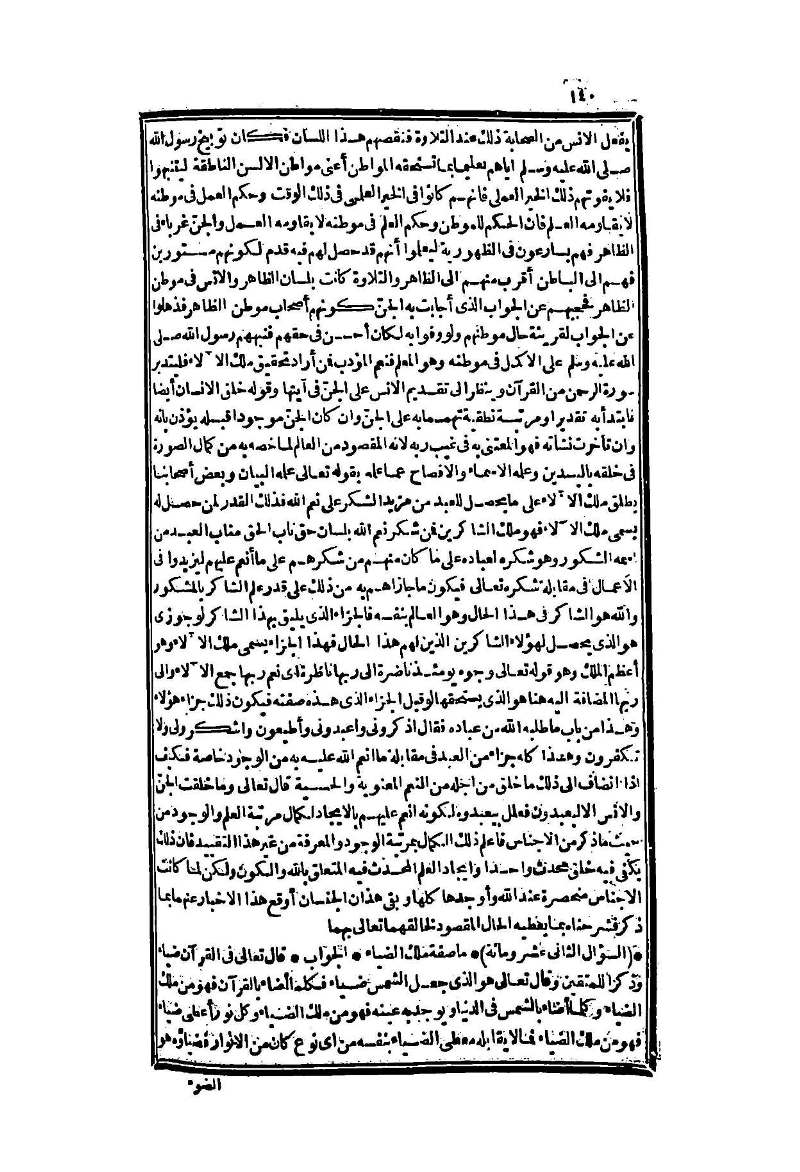 ١٤٠
يفعل الانس من الصحابة ذلك عند التلاوة فنقصهم هذا اللسان فكان توبيخ رسول الله
صلى الله عليه وسلم اياهم تعليما بما تستحقه المواطن أعنى مواطن الالسن الناطقة ليتنبهوا
فلا يفوتهم ذلك الخير العملى فانهم كانوا فى الخير العلمى فى ذلك الوقت وحكم العمل فى موطنه
لا يقاومه العلم فان الحكم للموطن وحكم العلم فى موطنه لا يقاومه العمل والجن غرباء فى
الظاهر فهم يسارعون فى الظهور به ليعلموا أنهم قد حصل لهم فيه قدم لكونهم مستورين
فهم الى الباطن أقرب منهم الى الظاهر والتلاوة كانت بلسان الظاهر والانس فى موطن
الظاهر فحجبهم عن الجواب الذى أجابت به الجن كونهم أصحاب موطن الظاهر فذهلوا
عن الجواب لقرينة حال موطنهم ولو وفوا به لكان أحسن فى حقهم فنبههم رسول الله صلى
الله عليه وسلم على الاكمل فى موطنه وهو المعلم فنعم المؤدب فمن أراد تحقيق ملك الآلاء فليتدبر
سورة الرحمن من القرآن وينظر الى تقديم الانس على الجن فى آيتها وقوله خلق الانسان أيضا
فابتدأ به تقديرا ومرتبة نطقية تهمما به على الجن وان كان الجن موجودا قبله يؤذن بانه
وان تأخرت نشأته فهو المعتنى به فى غيب ربه لانه المقصود من العالم لما خصه به من كمال الصورة
فى خلقه باليدين وعلمه الاسماء والافصاح عما علمه بقوله تعالى علمه البيان وبعض أصحابنا
يطلق ملك الآلاء على ما يحصل للعبد من مزيد الشكر على نعم الله فذلك القدر لمن حصل له
يسمى ملك الآلاء فهو ملك الشاكرين فمن شكر نعم الله بلسان حق ناب الحق مناب العبد من
اسمه الشكور وهو شكره لعباده على ما كان منهم من شكرهم على ما أنعم عليهم ليزيدوا فى
الاعمال فى مقابلة شكره تعالى فيكون ما جازاهم به من ذلك على قدر علم الشاكر بالمشكور
والله هو الشاكر فى هذا الحال وهو العالم بنفسه فالجزاء الذى يليق بهذا الشاكر لو جوزى
هو الذى يحصل لهؤلاء الشاكرين الذين لهم هذا الحال فهذا الجزاء يسمى ملك الآلاء وهو
أعظم الملك وهو قوله تعالى وجوه يومئذ ناضرة الى ربها ناظرة اى نعم ربها جمع الآلاء والى
ربها المضافة اليه هنا هو الذى يستحقها لو قيل الجزاء الذى هذه صفته فيكون ذلك جزاء هؤلاء
وهذا من باب ما طلبه الله من عباده فقال اذكرونى واعبدونى وأطيعون واشكروا لى ولا
تكفرون وهذا كله جزاء من العبد فى مقابلة ما انعم الله عليه به من الوجود خاصة فكيف
اذا انضاف الى ذلك ما خلق من اجله من النعم المعنوية والحسية قال تعالى وما خلقت الجن
والانس الا ليعبدون فعلل ليعبدوه لكونه انعم عليهم بالايجاد لكمال مرتبة العلم والوجود من
حيث ما ذكر من الاجناس فاعلم ذلك الكمال بمرتبة الوجود والمعرفة من غير هذا التقييد فان ذلك
يكفى فيه خلق محدث واحد وايجاد العلم المحدث فيه المتعلق بالله والكون ولكن لما كانت
الاجناس منحصرة عند الله وأوجدها كلها وبقى هذان الجنسان أوقع هذا الاخبار عنهما بما
ذكر فشرحناه بما يعطيه الحال المقصود لخالقهما تعالى بهما
*(السؤال الثانى عشر ومائة)* ما صفة ملك الضياء * الجواب * قال تعالى فى القرآن ضياء
وذكرا للمتقين وقال تعالى هو الذى جعل الشمس ضياء فكلما أضاء بالقرآن فهو من ملك
الضياء وكلما أضاء بالشمس فى الدنيا ويوجد به عينه فهو من ملك الضياء وكل نور أعطى ضياء
فهو من ملك الضياء مما لا يقابله معطى الضياء بنفسه من اى نوع كان من الانوار فضياؤه هو
الضوء